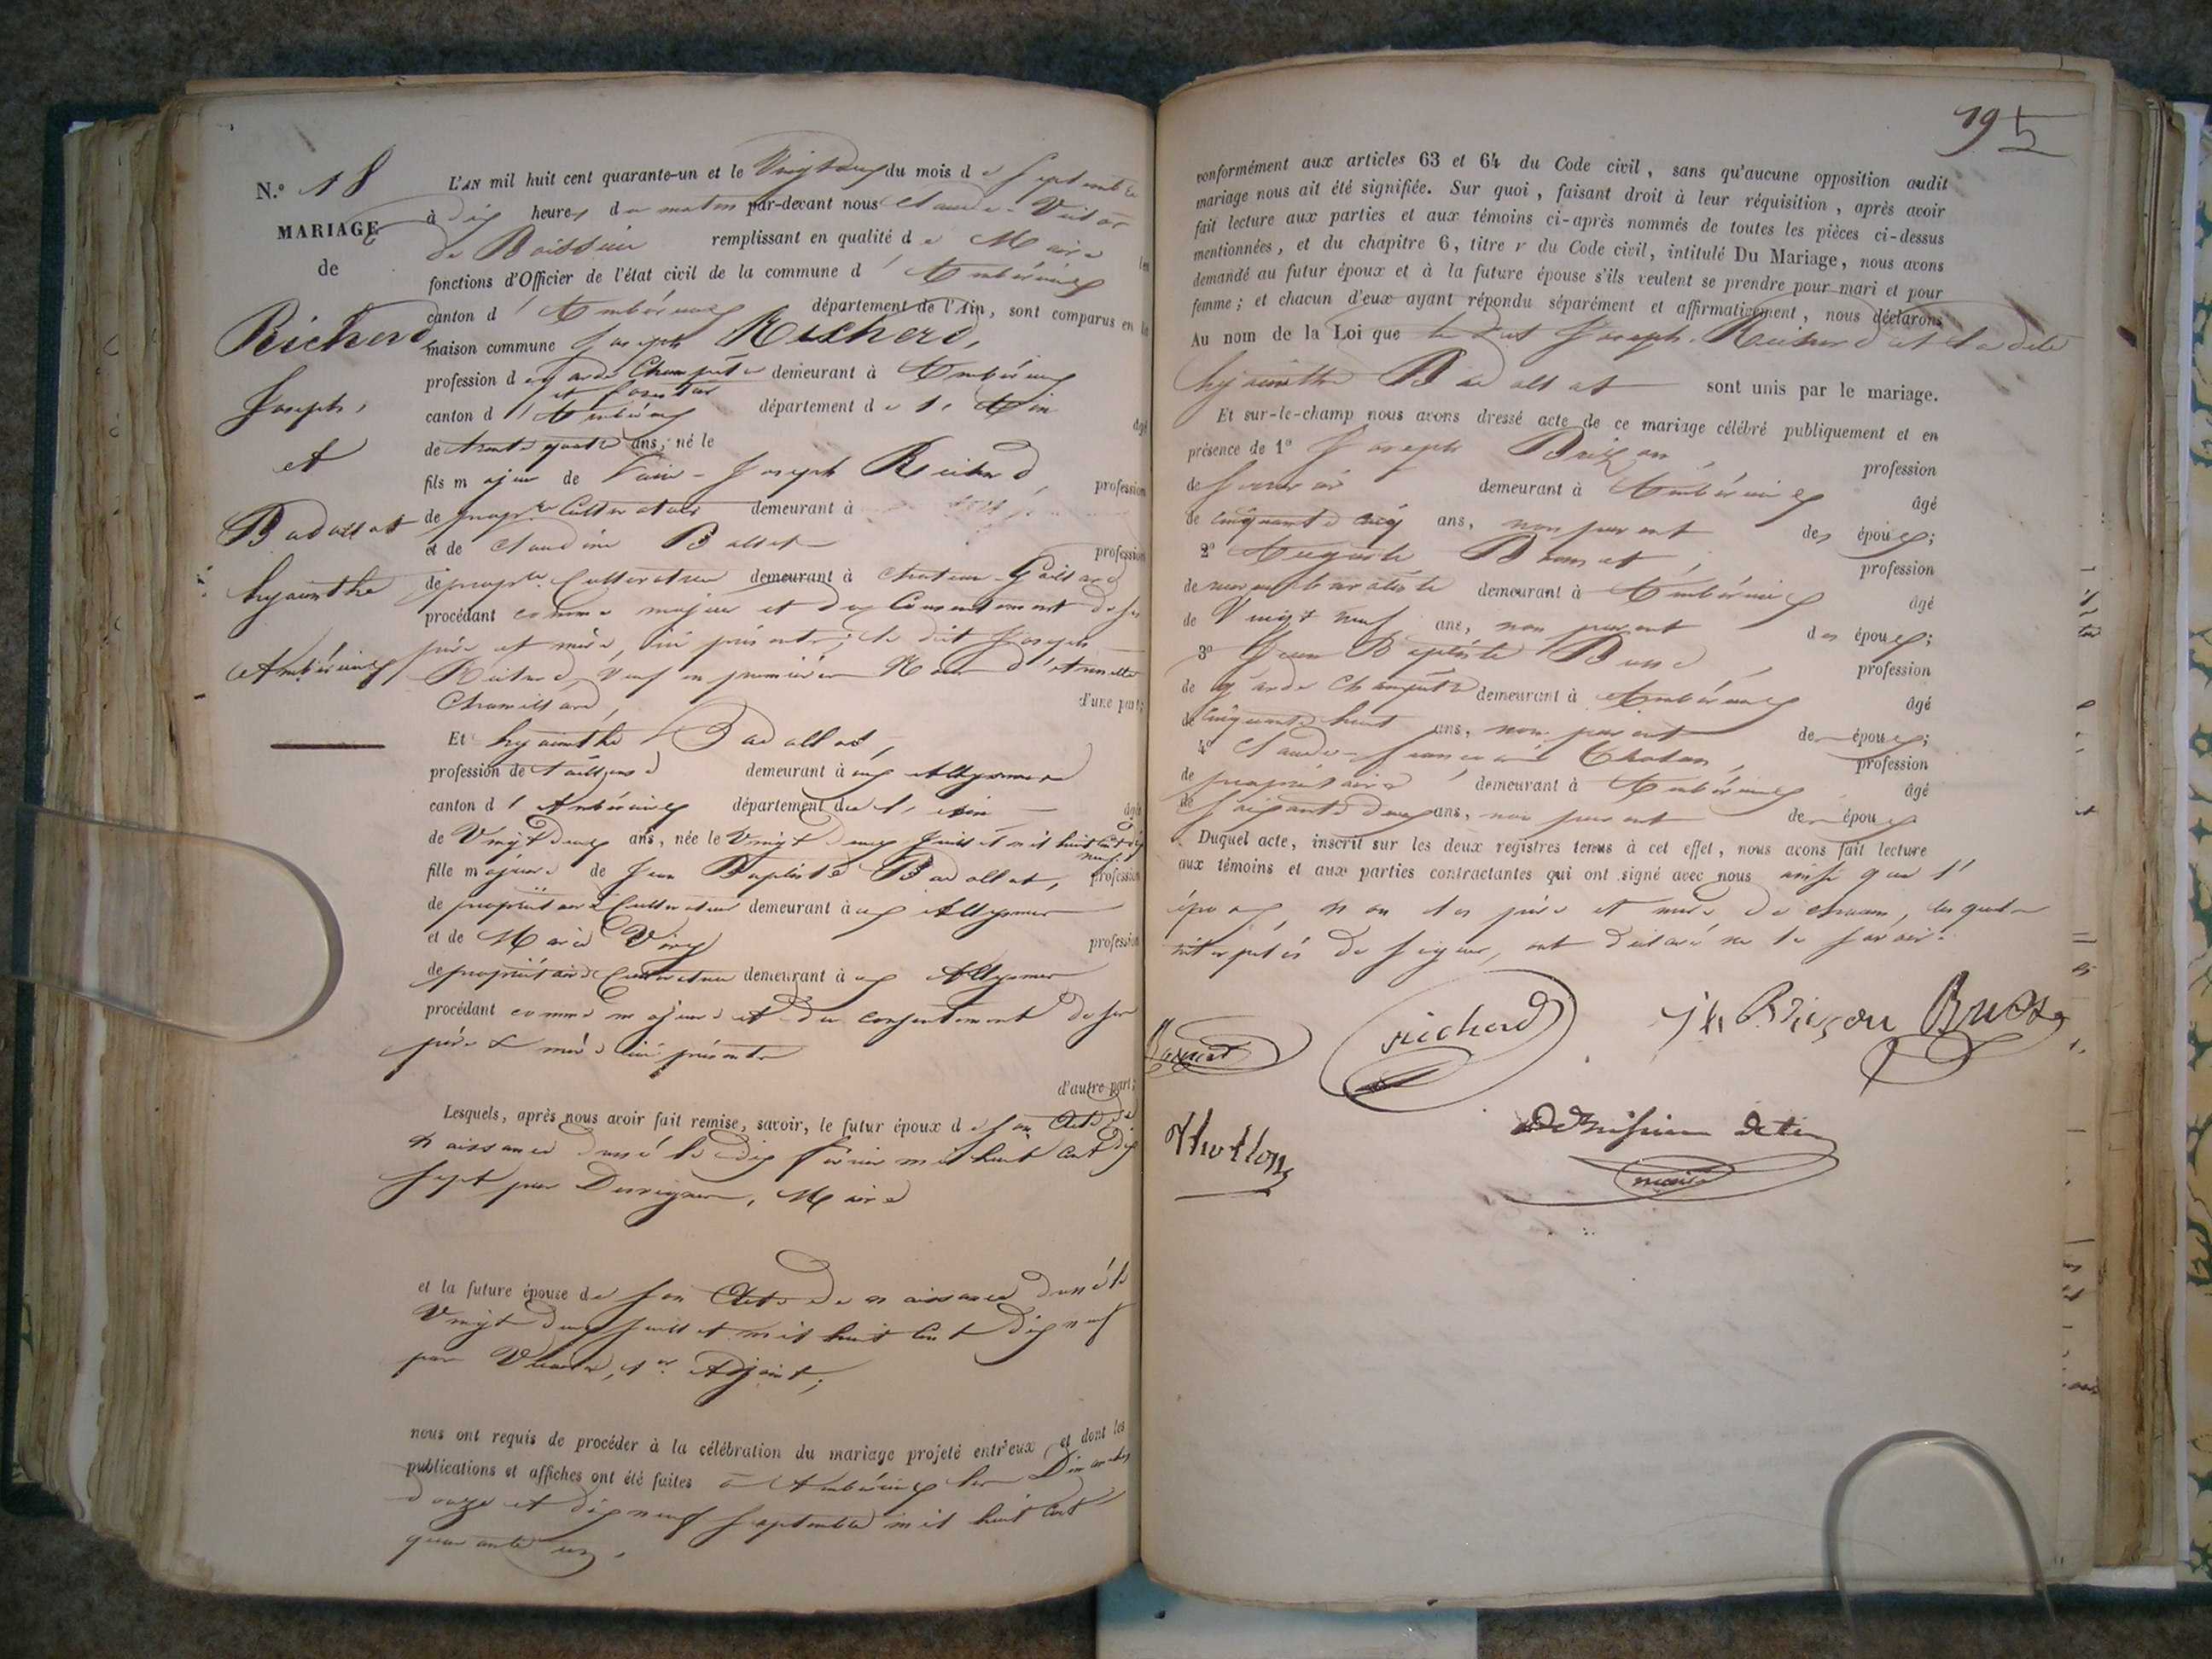 N.º 18
MARIAGE
de
Richerd
Joseph,
et
Badollat
hyacinthe
Ambérieux
L'AN mil huit cent quarante-un et le Vingt deux du mois de Septembre
à dix heures du matin par-devant nous Claude-Victor
de Boissieu remplissant en qualité de Maire les
fonctions d'Officier de l'état civil de la commune d'Ambérieux
canton d'Ambérieux département de l'Ain, sont comparus en la
maison commune Joseph Richerd,
profession de garde Champêtre demeurant à Ambérieux
et forestier
canton d'Ambérieux département de l'Ain
âgé
de trente quatre ans, né le
fils majeur de Joseph Richerd, profession
de prop.re Cultivateur demeurant à
et de Claudine Ballet profession
de prop.re Cultivateur demeurant à Chateau-Gaillard
procédant comme majeur et du Consentement de ses
père et mère, ici présents; le dit Joseph
Richerd, Veuf en premières Noces d'
Chamillard, d'une part;
Et hyacinthe Badollat,
profession de tailleuse demeurant à aux Allymes
canton d'Ambérieux département de l'Ain âgée
de Vingt deux ans, née le Vingt deux juillet mil huit Cent dix
neuf
fille majeure de Jean Baptiste Badollat, profession
de propriétaire Cultivateur demeurant à aux Allymes
et de Marie profession
de propriétaire Cultivateur demeurant à aux Allymes
procédant comme majeure et du consentement de ses
père & mère ici présents
d'autre part;
Lesquels, après nous avoir fait remise, savoir, le futur époux de son Acte de
naissance dressé le dix février mil huit Cent dix
sept par , Maire
et la future épouse de son Acte de naissance dressé le
Vingt deux juillet mil huit Cent dix neuf
par , 1.er Adjoint;
nous ont requis de procéder à la célébration du mariage projeté entr'eux et dont les
publications et affiches ont été faites à Ambérieux les Dimanches
douze et dix neuf Septembre mil huit Cent
quarante un.
195
conformément aux articles 63 et 64 du Code civil, sans qu'aucune opposition audit
mariage nous ait été signifiée. Sur quoi, faisant droit à leur réquisition, après avoir
fait lecture aux parties et aux témoins ci-après nommés de toutes les pièces ci-dessus
mentionnées, et du chapitre 6, titre v du Code civil, intitulé Du Mariage, nous avons
demandé au futur époux et à la future épouse s'ils veulent se prendre pour mari et pour
femme; et chacun d'eux ayant répondu séparément et affirmativement, nous déclarons
Au nom de la Loi que le dit Joseph Richerd et la dite
hyacinthe Badollat sont unis par le mariage.
Et sur-le-champ nous avons dressé acte de ce mariage célébré publiquement et en
présence de 1º Joseph Brizon, profession
de demeurant à Ambérieux âgé
de cinquante cinq ans, non parent des époux;
2º Auguste Bonnet, profession
de demeurant à Ambérieux âgé
de Vingt neuf ans, non parent des époux;
3º Jean Baptiste , profession
de garde Champêtre demeurant à Ambérieux âgé
de Cinquante huit ans, non parent des époux;
4º Claude-, profession
de propriétaire demeurant à Ambérieux âgé
de soixante deux ans, non parent des époux
Duquel acte, inscrit sur les deux registres tenus à cet effet, nous avons fait lecture
aux témoins et aux parties contractantes qui ont signé avec nous ainsi que l'
époux, non les père et mère de chacun, lesquels
interpelés de signer, ont déclaré ne le savoir.
Bonnet richerd Jh Brizon
maire